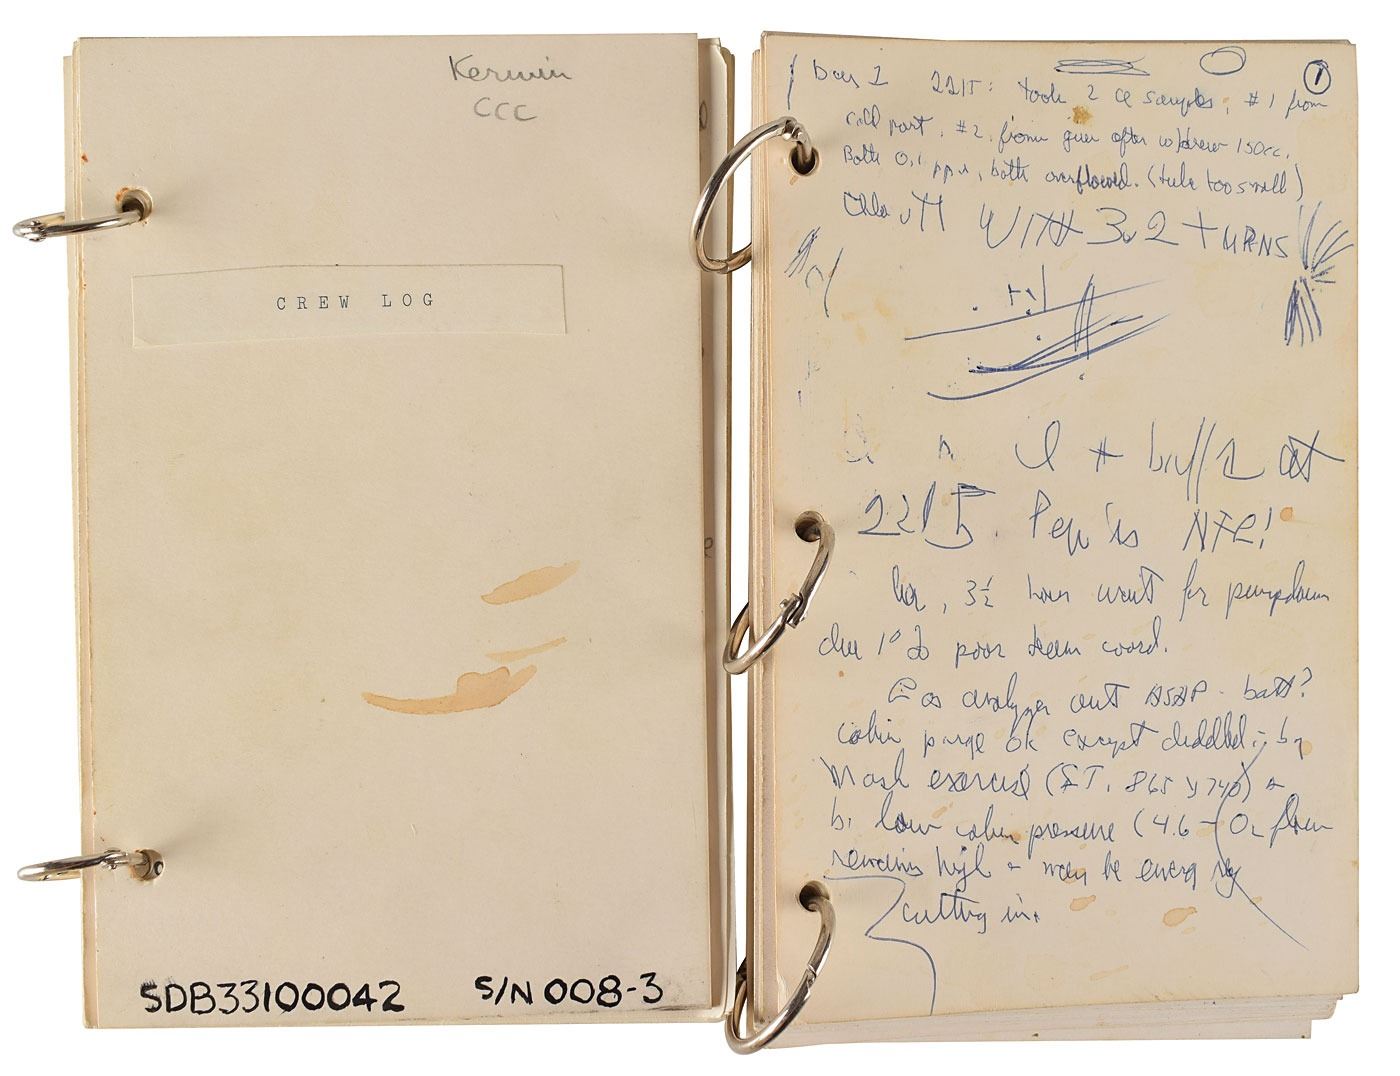 Kerwin
CCC
CREW LOG
SDB33100042 S/N 008-3
1
Day 1 2215: took 2 Cl samples, #1 from
cold port, #2 from gun after w/drew 150cc.
Both 0.1 ppm, both overflowed. (tube too small)
WITH 3 2 TURNS
at
2215. Pep is NFG!
3½ hour wait for pumpdown
due 1° to poor team coord.
Gas analyzer out ASAP - batt?
cabin purge OK except by
Mask exercise (ST. 865 740) &
by low cabin pressure (4.6 - O2 flow
remains high & may be emerg reg
cutting in.